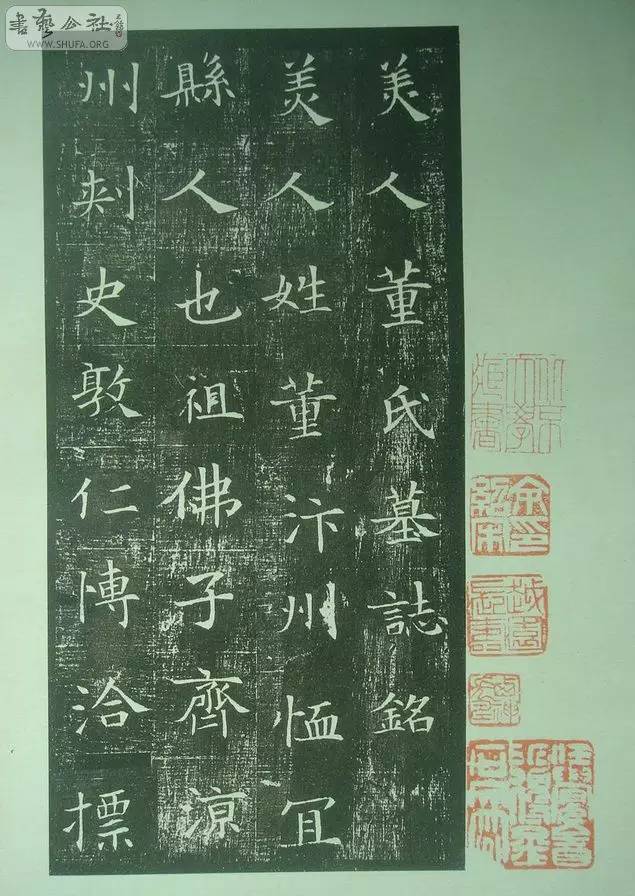 書藝公社
WWW.SHUFA.ORG
美人董氏墓誌銘
美人姓董汴州恤冝
縣人也祖佛子齊涼
州刾史敦仁愽洽摽
余印紹宋